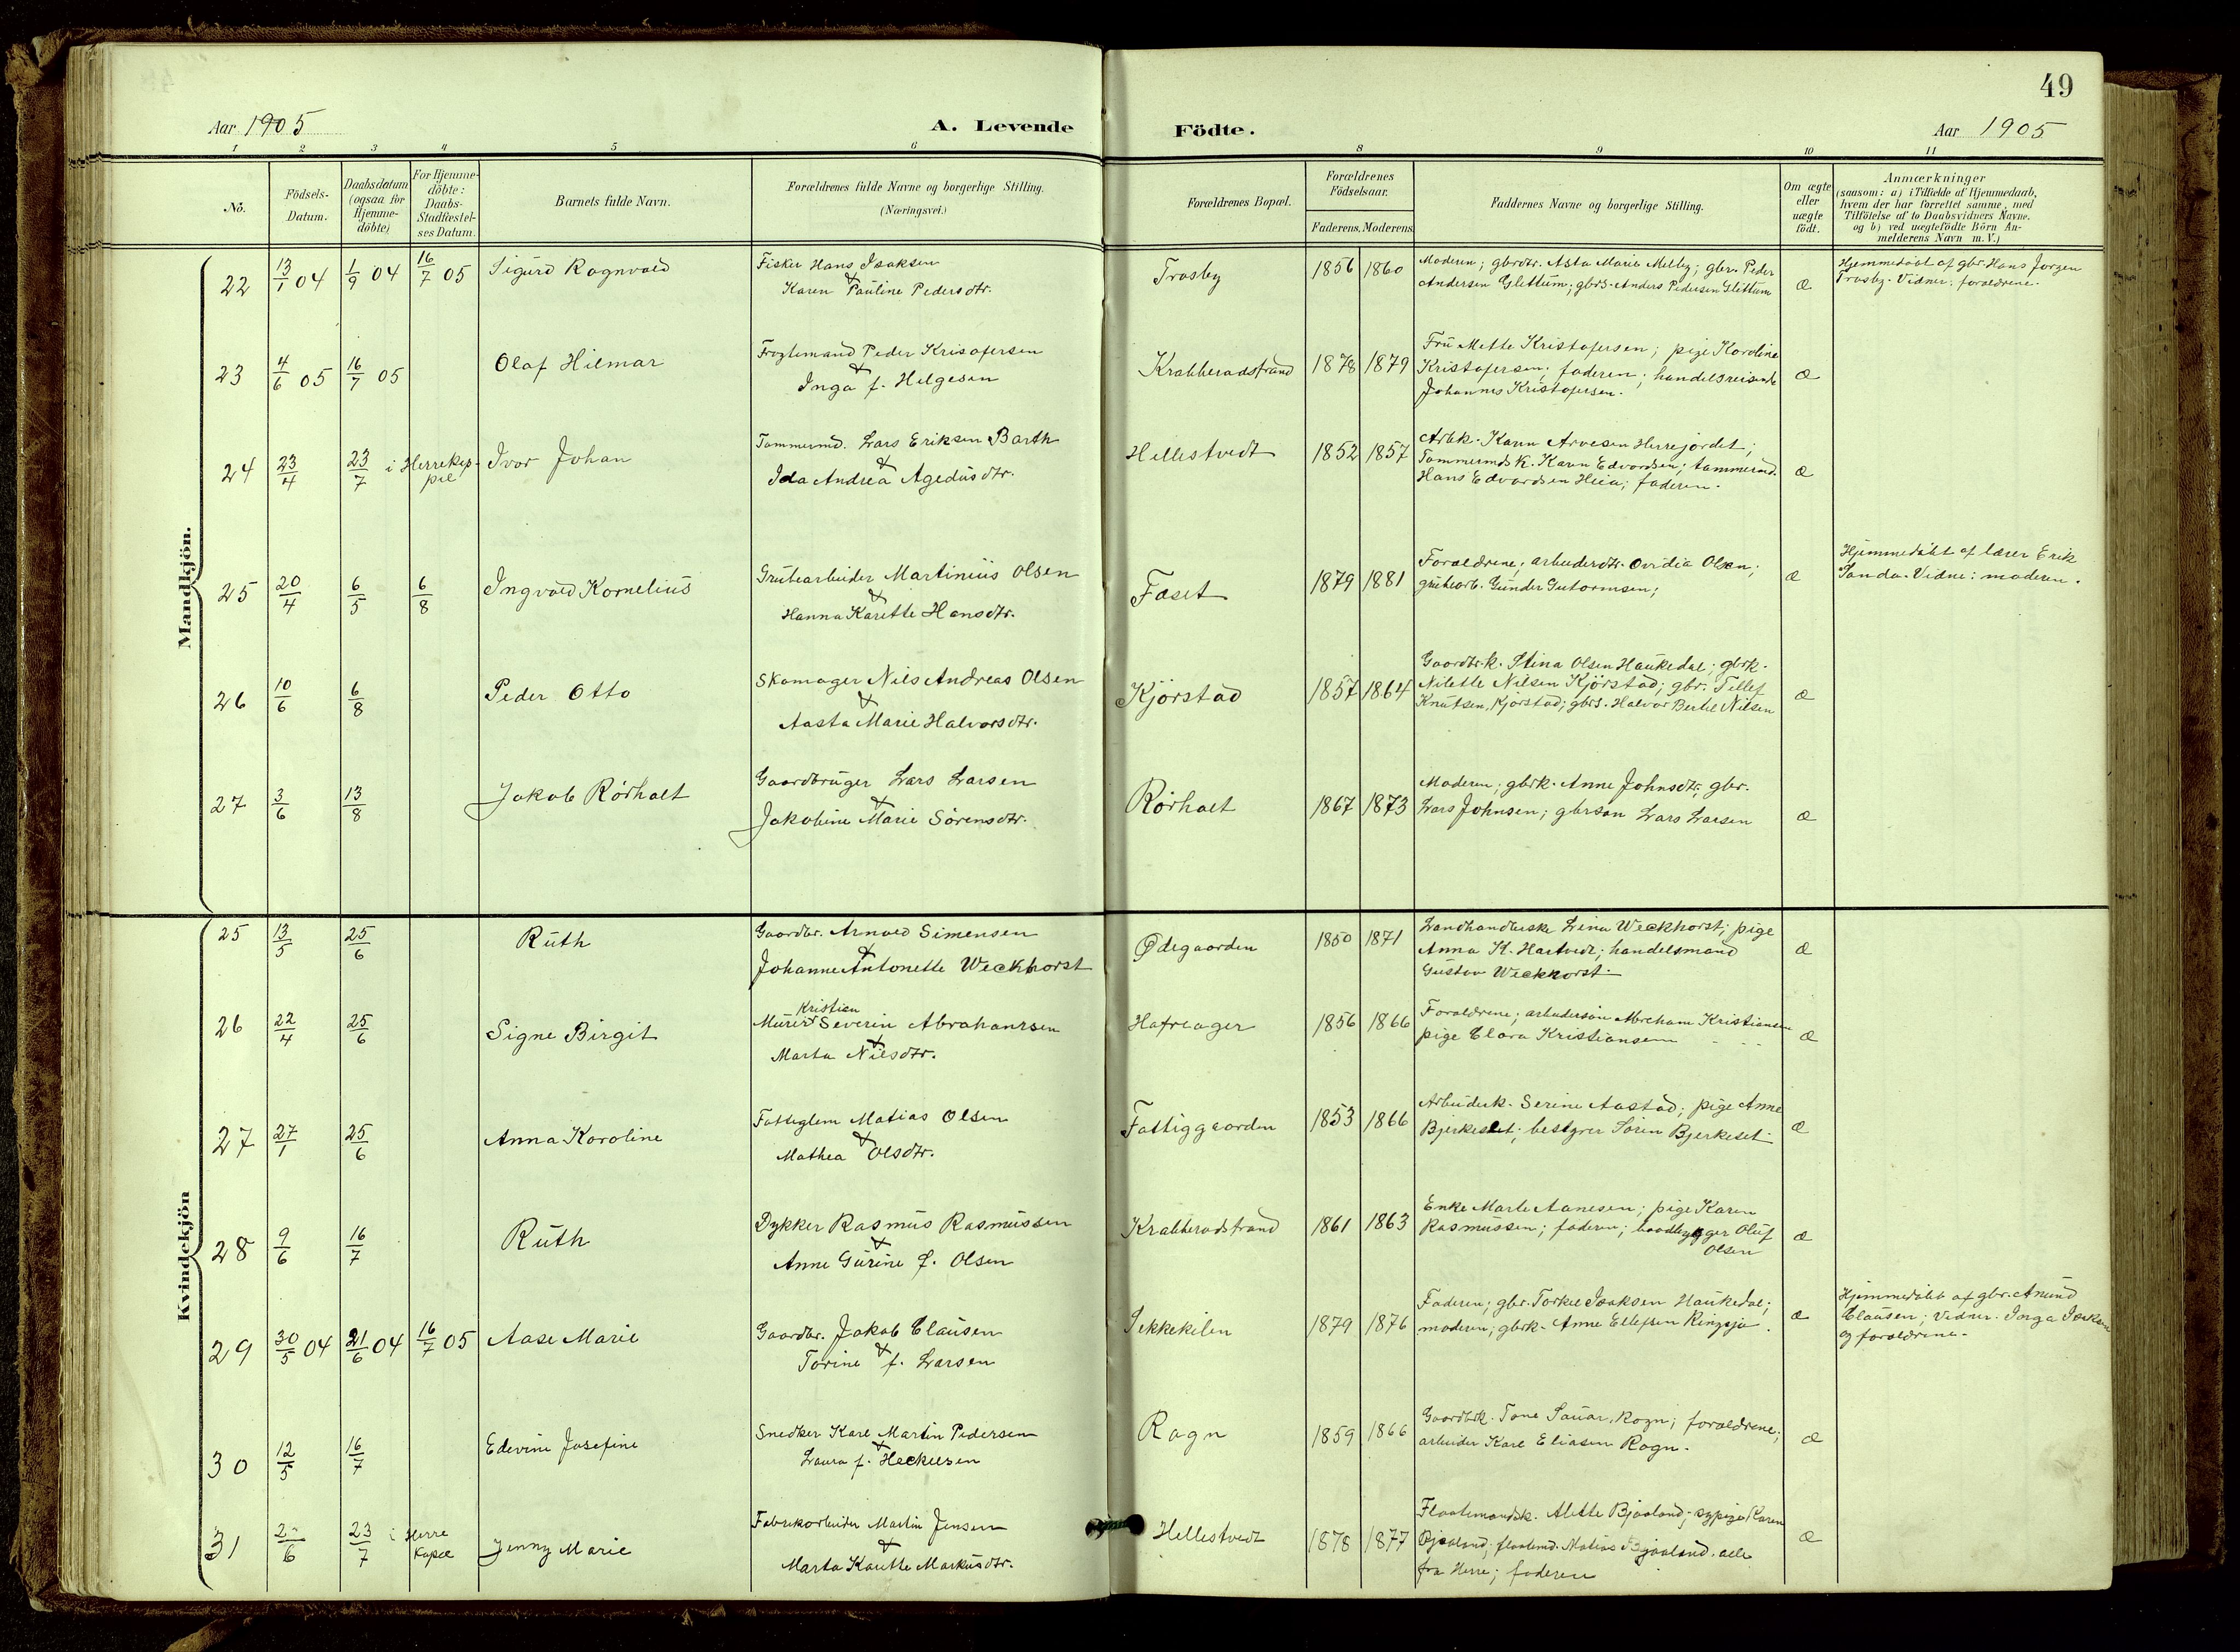 49
Aar 1905
A. Levende
Födte.
Aar 1905
1 2 3 4 5 6 8 9 10 11
No.
Födsels-
Datum.
Daabsdatum
(ogsaa for
Hjemme-
döbte)
For Hjemme-
döbte:
Daabs-
Stadfæstel-
ses Datum.
Barnets fulde Navn.
Forældrenes fulde Navne og borgerlige Stilling.
(Næringsvei.)
Forældrenes Bopæl.
Forældrenes
Födselsaar.
Faderens. Moderens.
Faddernes Navne og borgerlige Stilling.
Om ægte
eller
uægte
födt.
Anmærkninger
(saasom: a) i Tilfælde af Hjemmedaab,
hvem der har forrettet samme, med
Tilföielse af to Daabsvidners Navne.
og b) ved uægtefödte Börn An-
melderens Navn m. V.)
Mandkjön.
22 13/1 04 1/9 04 16/7 05 Sigurd Ragnvald
Fisker Hans Isaksen
&
Karen Pauline Pedersdtr.
Trosby 1856 1860
Moderen; gbrdtr. Asta Marie Melby; gbr. Peder
Andersen Glittum; gbrs. Anders Pedersen Glittum
æ
Hjemmedöbt af gbr. Hans Jorgen
Trosby. Vidner: forældrene.
23 4/6 05 16/7 05 Olaf Hilmar
Peder Krisofersen
&
Inga f. Helgesen
Krabberødstrand 1878 1879
Fru Mette Kristofersen; pige Karoline
Kristofersen; faderen; handelsreisende
Johannes Kristofersen.
æ
24 23/4 23/7 i Herrekap-
pel
Ivar Johan
Tømmermd. Lars Eriksen Barth
&
Ida Andrea Agediusdtr.
Hellestvedt 1852 1857
Arbk. Karen Arvesen Herrejordet;
Tømmermds k. Karen Edvardsen; tømmermd.
Hans Edvardsen Heia; faderen.
æ
25 20/4 6/5 6/8 Ingvald Kornelius
Grubearbeider Martinius Olsen
&
Hanna Karette Hansdtr.
Foset 1879 1881
Forældrene; arbeiderdtr. Ovidia Olsen;
grubearb. Gunder Gutormsen;
æ
Hjemmedöbt af lærer Erik
Sanda. Vidne: moderen.
26 10/6 6/8 Peder Otto
Skomager Nils Andreas Olsen
&
Aasta Marie Halvorsdtr.
Kjörstad 1857 1864
Gaardbr.k. Stina Olsen Haukedal; gbrk.
Nilette Nilsen Kjörstad; gbr. Tellef
Knutsen, Kjörstad; gbrs. Halvor Bertel Nilsen
æ
27 3/6 13/8 Jakob Rörholt
Gaardbruger Lars Larsen
&
Jakobine Marie Sörensdtr.
Rörholt 1867 1873
Moderen; gbrk. Anne Johnsdtr; gbr.
Lars Johnsen; gbrsön Lars Larsen
æ
Kvindekjön
25 13/5 25/6 Ruth
Gaardbr. Arnold Simensen
&
Johanne Antonette Weckhorst
Ødegaarden 1850 1871
Landhandlerske Lina Weckhorst; pige
Anna K. Hartvedt; handelsmand
Gustav Weckhorst.
æ
26 22/4 25/6 Signe Birgit
Kristian
Murer Severin Abrahamsen
&
Marta Nilsdtr.
Hafreager 1856 1866
Forældrene; arbeidersön Abraham Kristiansen
pige Clara Kristiansen
æ
27 27/1 25/6 Anna Karoline
Fattiglem Matias Olsen
&
Mathea Olsdtr.
Fattiggaarden 1853 1866
Arbeiderk. Serine Aastad; pige Anne
Bjerkeset; bestyrer Sören Bjerkeset
æ
28 9/6 16/7 Ruth
Dykker Rasmus Rasmussen
&
Anne Gurine f. Olsen
Krabberødstrand 1861 1863
Enke Marte Aanesen; pige Karen
Rasmussen; faderen; baadbygger Oluf
Olsen
æ
29 30/5 04 21/6 04 16/7 05 Aase Marie
Gaardbr. Jakob Clausen
&
Torine f. Larsen
Sekkekilen 1879 1876
Faderen; gbr. Torkel Isaksen Haukedal;
moderen; gbrk. Anne Ellefsen Ringsjø.
æ
Hjemmedöbt af gbr. Anund
Clausen; Vidner. Inga Isaksen
og forældrene.
30 12/5 16/7 Edevine Josefine
Snedker Karl Martin Pedersen
&
Laura f.
Rogn 1859 1866
Gaardbrk. Tone Sauar, Rogn; forældrene;
arbeider Karl Eliasen Rogn.
æ
31 2/6 23/7 i Herre
Kapel
Jenny Marie
Fabrikarbeider Martin Jensen
&
Marta Karette Markusdtr.
Hellestvedt 1878 1877
Fløtemandsk. Alette Bjaaland; sypige Karen
Bjaaland; fløtemd. Matias Bjaaland. alle
fra Herre; faderen
æ